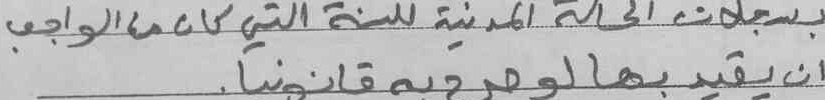 بسجلات الحالة المدنية للسنة التي كان من الواجب
ان يقيد بها لو صرح به قانونيا.